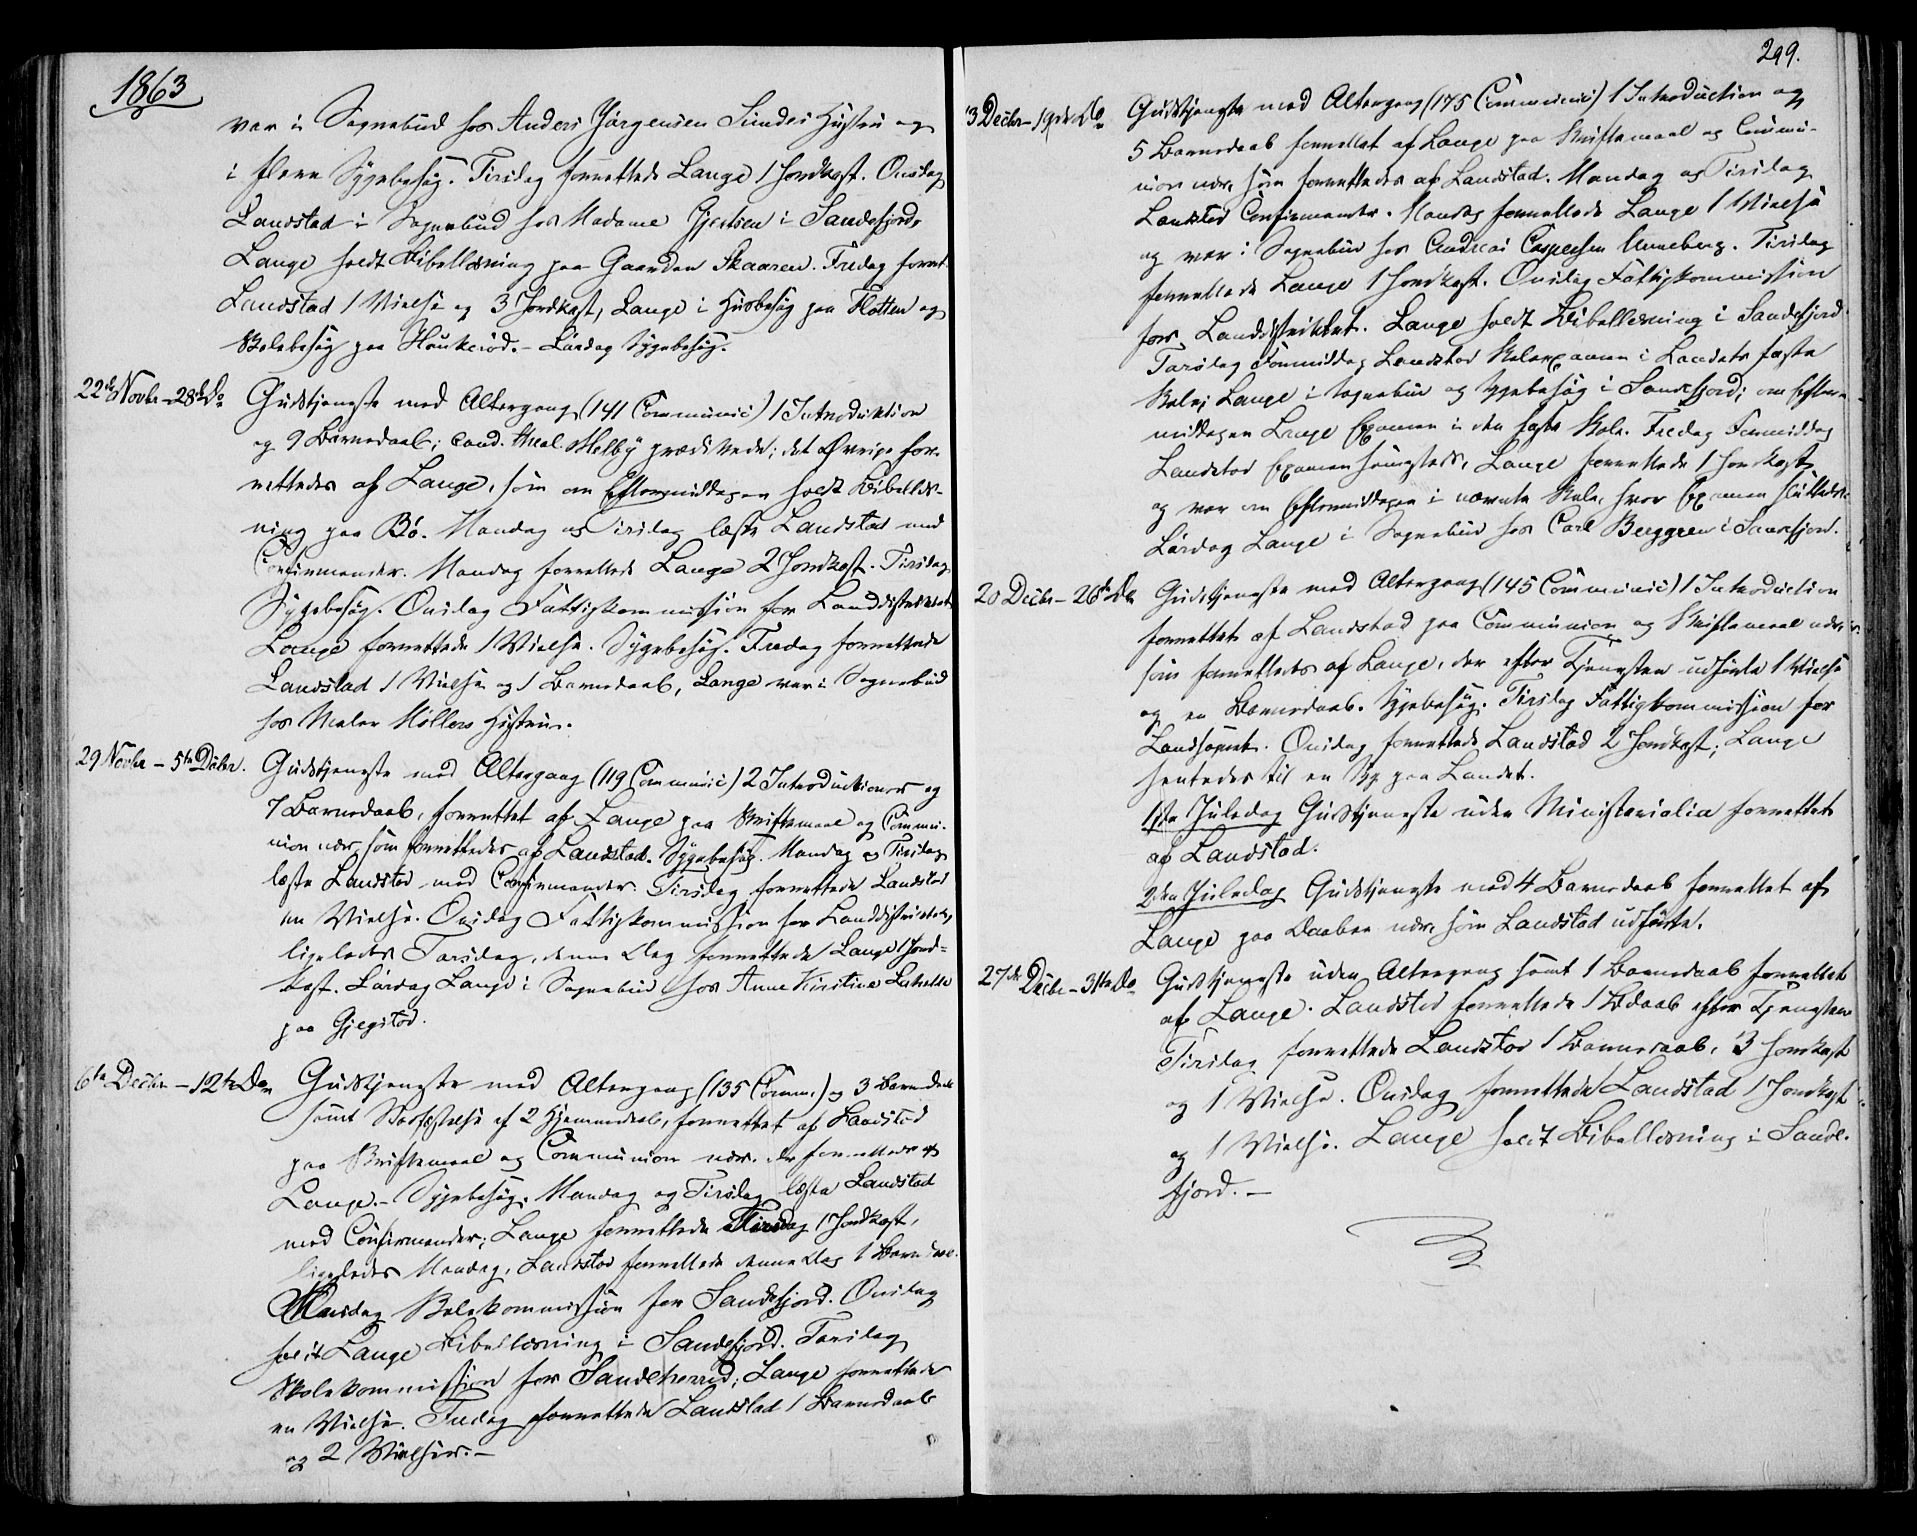 1863
var i Sognebud hos Anders Jørgensen Sundes Hustru og
i flere Sygebesøg. Tirsdag forrettede Lange 1 Jordkast. Onsdag
Landstad i Sognebud hos Madame Gjertsen i Sandefjord,
Lange holdt Bibellæsning paa Gaarden Skaaren. Fredag forret.
Landstad 1 Vielse og 3 Jordkast, Lange i Husbesøg paa Flotten og
Skolebesøg paa Haukerød. - Lørdag Sygebesøg.
22de Novbr - 28de Do Gudstjeneste med Altergang (141 Communic) 1 Introduktion
og 9 Barnedaab; cand. theol. Melby prædikede; det Øvrige for-
rettedes af Lange, som om Eftermiddagen holdt Bibellæs-
ning paa Bø. Mandag og Tirsdag læste Landstad med
Confirmander. Mandag forrettede Lange 2 Jordkast. Tirsdag
Sygebesøg. Onsdag Fattigkommission for Landdistriktet
Lange forrettede 1 Vielse. Sygebesøg. Fredag forrettede
Landstad 1 Vielse og 1 Barnedaab, Lange var i Sognebud
hos Maler Møllers Hustru.
29 Novbr - 5te Decbr. Gudstjeneste med Altergang (119 Communic) 2 Introductioner og
7 Barnedaab, forrettet af Lange paa Skriftemaal og Commu-
nion nær, som forrettedes af Landstad. Sygebesøg. Mandag og Tirsdag
læste Landstad med Confirmander. Tirsdag forrettede Landstad
en Vielse. Onsdag Fattigkommission for Landdistriktet,
ligeledes Torsdag, denne Dag forrettede Lange 1 Jord-
kast. Lørdag Lange i Sognebud hos Anne Kirstine
paa
6te Decbr - 12te Do Gudstjeneste med Altergang (135 Comm.) og 3 Barnedaab
samt Stadfæstelse af 2 Hjemmedaab, forrettet af Landstad
paa Skriftemaal og Communion nær. der forrettedes af
Lange. - Sygebesøg. Mandag og Tirsdag læste Landstad
med Confirmander; Lange forrettede Tirsdag 1 Jordkast,
ligeledes Mandag. Landstad forrettede denne Dag 1 Barnedaab.
Mandag Skolekommission for Sandefjord. Onsdag
holdt Lange Bibellæsning i Sandefjord. Torsdag
Skolekommission for Sandeherred; Lange forrettede
en Vielse. Fredag forrettede Landstad 1 Barnedaab
og 2 Vielser. -
299.
13 Decbr - 19de Do Gudstjeneste med Altergang (175 Communic) 1 Introduction og
5 Barnedaab forrettet af Lange paa Skriftemaal og Commu-
nion nær, som forrettedes af Landstad. Mandag og Tirsdag
Landstad Confirmander. Mandag forrettede Lange 1 Vielse
og var i Sognebud hos Andreas Caspersen Unneberg. Tirsdag
forrettede Lange 1 Jordkast. Onsdag Fattigkommission
for Landdistriktet. Lange holdt Bibellæsning i Sandefjord
Torsdag Formiddag Landstad Skoleexamen i Landets faste
Skole; Lange i Sognebud og Sygebesøg i Sandefjord; om Efter-
middagen Lange Examen i den faste Skole. Fredag Formiddag
Landstad Examen sammesteds, Lange forrettede 1 Jordkast,
og var om Eftermiddagen i nævnte Skole, hvor Examen sluttedes.
Lørdag Lange i Sognebud hos Carl Berggren i Sandefjord.
20 Decbr - 26de Do Gudstjeneste med Altergang (145 Communic) 1 Introduction
forrettet af Landstad paa Communion og Skriftemaal nær,
som forrettedes af Lange, der efter Tjenesten udførte 1 Vielse
og en Barnedaab. Sygebesøg. Tirsdag Fattigkommission for
Landsognet. Onsdag forrettede Landstad 2 Jordkast; Lange
hentedes til en Syg paa Landet.
1ste Juledag Gudstjeneste uden Ministerialia forrettet
af Landstad.
2den Juledag Gudstjeneste med 4 Barnedaab forrettet af
Lange paa Daaben nær, som Landstad udførte.
27de Decbr - 31te Do Gudstjeneste uden Altergang samt 1 Barnedaab forrettet
af Lange. Landstad forrettede 1 Bdaab efter Tjenesten
Tirsdag forrettede Landstad 1 Barnedaab, 3 Jordkast
og 1 Vielse. Onsdag forrettede Landstad 1 Jordkast
og 1 Vielse. Lange holdt Bibellæsning i Sande-
fjord. -